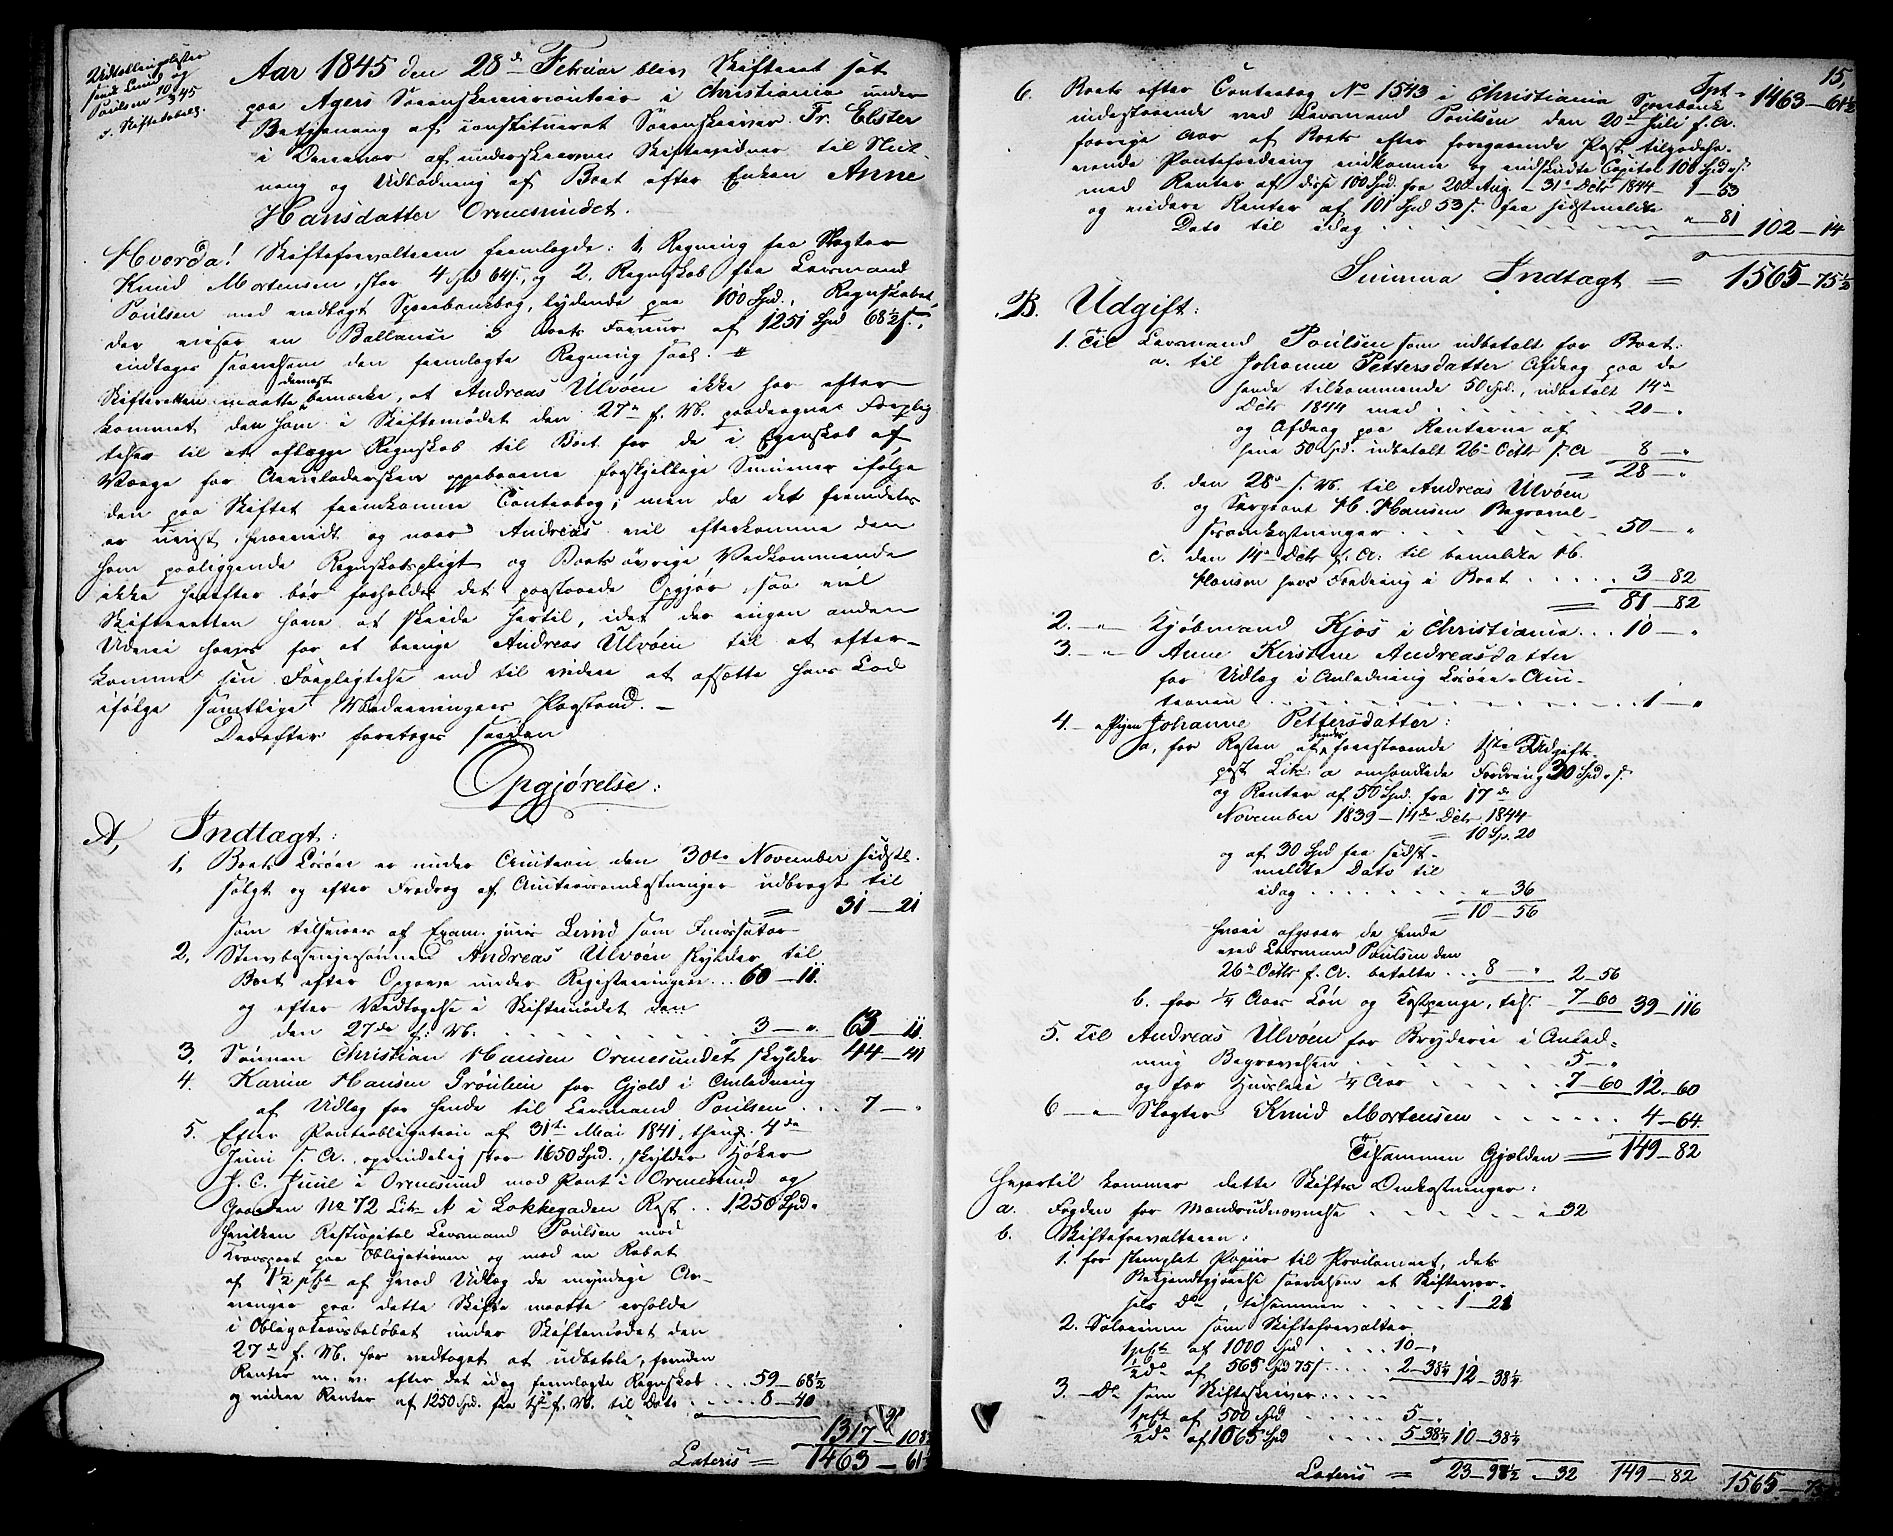 Udtællingslister
sendt Lund og
Poulsen 10/3 45
Aar 1845 den 28de Februar blev Skifteret sat
paa Agers Sorenskrivercontoir i Christiania under
Betjening af constitueret Sorenskriver Fr. Elster
i Overvær af underskrevne Skiftevidner til Slut-
ning og Udlodning af Boet efter Enken Anne
Hansdatter Ormesundet.
Hvorda! Skifteforvalteren fremlagde: 1, Regning fra Slagter
Knud Mortensen, stor 4 Spd 64 s., og 2, Regnskab fra Lensmand
Poulsen med modtagt Sparebankbog, lydende paa 100 Spd., Regnskabet,
der viser en Ballance i Boets Faveur af 1251 Spd 68½ s.,
indtages saavelsom den fremlagte Regning saal. #
Skifteretten maatte dernæst bemærke, at Andreas Ulvøen ikke har efter-
kommet den ham i Skiftemødet den 27de f. M. paadragne Forplig-
telse til at aflægge Regnskab til Boet for de i Egenskab af
Værge for Arveladersken oppebaarne forskjellige Summer ifølge
den paa Skiftet fremkomne Contrabog; men da det fremdeles
er uvist, hvorvidt og naar Andreas vil efterkomme den
ham paaliggende Regnskabspligt og Boets øvrige Vedkommende
ikke herefter bør forholdes det paastaaede Opgjør, saa vil
Skifteretten have at skride hertil, idet der ingen anden
Udvei haves for at tvinge Andreas Ulvøen til at efter-
komme sin Forpligtelse end til videre at afsætte hans Lod
ifølge samtlige Myndlingers Paastand. –
Derefter foretoges saadan
Opgjørelse:
A, Indtægt:
1, Boets Løsøre er under Auction den 30te November sidstl.
solgt og efter Fradrag af Auctionsomkostninger udbragt til
= 31 – 21
som tilsvares af Exam. juris Lund som Incassator
2, Stervbosviesønnen Andreas Ulvøen skylder til
Boet efter Opgave under Registreringen ... 60 – 11.
og efter Vedtagelse i Skiftemødet den
den 27de f. M. . . . 3 – „ 63 – 11.
3, Sønnen Christian Hansen Ormesundet skylder 44 – 41
4. Karine Hansen Grøulien for Gjæld i Anledning
af Udlæg for hende til Lensmand Poulsen . . . 7 – „
5. Efter Panteobligation af 31te Mai 1841, thingl. 4de
Juni s. A. oprindelig stor 1650 Spd., skylder Høker
J. C. Juul i Ormesund med Pant i Ormesund og
Gaarden No 72 Litr A i Lakkegaden Rest . . 1,250 Spd.
hvilken Restcapital Lensmand Poulsen mod
Transport paa Obligationen og mod en Rabat
af 1½ pCt af hvad Udlæg de myndige Ar-
vinger paa dette Skifte maatte erholde
i Obligationsbeløbet under Skiftemødet den
27de f. M. har vedtaget at udbetale, foruden
Renter m. v. efter det idag fremlagte Regnskab . . . 59 – 68½
og videre Renter af 1250 Spd. fra 1ste f. M. til Dato . . . 8 – 40
1317 – 108½
Lateris = 1463 – 61½
15,
Tpt = 1463 – 61½
6. Boets efter Contrabog No 1543 i Christiania Sparebank
indestaaende ved Lensmand Poulsen den 20de Juli f. A.
forrige Aar af Boets efter foregaaende Post tilgodeha-
vende Pantefordring indkomne og indskudte Capital 100 Spd „ s.
med Renter af disse 100 Spd. fra 20de Aug. – 31te Dcbr 1844 1 – 53
og videre Renter af 101 Spd 53 s. fra sidstmeldte
Dato til idag . . . . „ – 81 102 – 14
Summa Indtægt = 1565 – 75½
B. Udgift:
1. Til Lensmand Poulsen som udbetalt for Boet:
a. til Johanne Pettersdatter Afdrag paa de
hende tilkommende 50 Spd., udbetalt 14de
Dcbr 1844 med . . . . 20 – „
og Afdrag paa Renterne af
hine 50 Spd. udbetalt 26de Octbr s. A 8 – „
= 28 – „
b. den 28de s. M. til Andreas Ulvøen
og Sergeant H. Hansen Begravel-
sesomkostninger . . . . 50 – „
c. den 14de Dcbr f. A. til bemeldte H.
Hansen hans Fordring i Boet . . . . 3 – 82
= 81 – 82
2. – „ – Kjøbmand Kjøs i Christiania . . . 10 – „
3. – „ – Anne Kirstine Andreasdatter
for Udlæg i Anledning Løsøre-Auc-
tionen . . . . 1 – „
4. – „ Pigen Johanne Pettersdatter:
a, for Resten af hendes foranstaaende 1ste Udgifts-
post Litr a omhandlede Fordring 30 Spd „ s.
og Renter af 50 Spd. fra 17de
November 1839 – 14de Dcbr 1844
= 10 Sp. 20
og af 30 Spd fra sidst-
meldte Dato til
idag . . . . „ 36
= 10 – 56
hvori afgaaer de hende
ved Lensmand Poulsen den
26de Octbr f. A. betalte . . . 8 – „ 2 – 56
b. for ¼ Aars Løn og Kostpenge, tils. – 7 – 60 39 – 116
5. Til Andreas Ulvøen for Bryderi i Anled-
ning Begravelsen . . . 5 – „
og for Huusleie ¼ Aar . . . . 7 – 60 12 – 60
6 – „ – Slagter Knud Mortensen . . . . 4 – 64.
Tilsammen Gjælden = 149 – 82
Hvortil kommer dette Skiftes Omkostninger:
a. Fogden for Mændsudnævnelse . . . . „ – 32
b. Skifteforvalteren:
1. for stemplet Papiir til Proclamaet, dets
Bekjendtgjørelse saavelsom et Skiftevar-
sels do, tilsammen . . . . 1 – 21
2. Salarium som Skifteforvalter
1 pCt af 1000 Spd . . . . 10 – „
½ do af 565 Spd 75 s. . . . . 2 – 38¼ 12 – 38¼
3. – Do som Skifteskriver . . . .
1 pCt af 500 Spd . . . . 5 – „
½ do af 1065 Spd . . . . 5 38¼ 10 – 38¼
Lateris = 23 – 97½ „ – 32 149 – 82 1565 – 75½